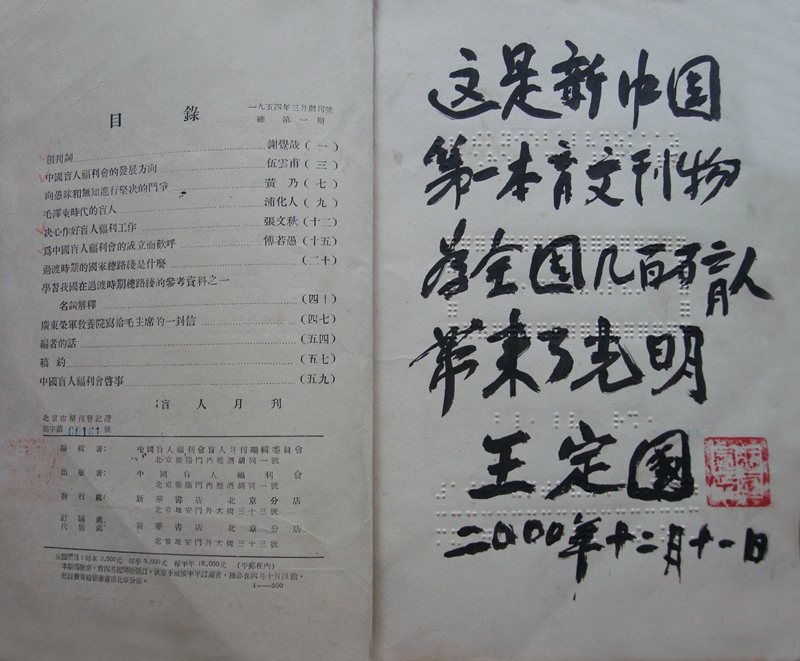 目錄
一九五四年三月創刊號
總第一期
創刊詞 謝覺哉(一)
中國盲人福利會的發展方向 伍雲甫(三)
向愚昧和無知進行堅决的鬥爭 黃乃(七)
毛澤東時代的盲人 浦化人(九)
决心作好盲人福利工作 張文秋(十二)
爲中國盲人福利會的成立而歡呼 傅若愚(十五)
過渡時期的國家總路綫是什麼 (二十)
學習我國在過渡時期總路綫的參考資料之一
名詞解釋 (四十)
廣東榮軍教養院寫給毛主席的一封信 (四七)
編者的話 (五四)
稿約 (五七)
中國盲人福利會啓事 (五九)
盲人月刊
北京市期刊登記證
出字第00101號
編輯者: 中國盲人福利會盲人月刊編輯委員會
北京朝陽門內經濟胡同一號
出版者: 中國盲人福利會
北京朝陽門內經濟胡同一號
發行處: 新華書店北京分店
北京地安門外大街三十三號
訂閱處、代售處: 新華書店北京分店
北京地安門外大街三十三號
定閱價目:每本3,000元 每季9,000元 每半年18,000元 (平郵在內)
1——500
这是新中国
第一本盲文刊物
为全国几百万盲人
带来了光明
王定國
二000年十二月十一日